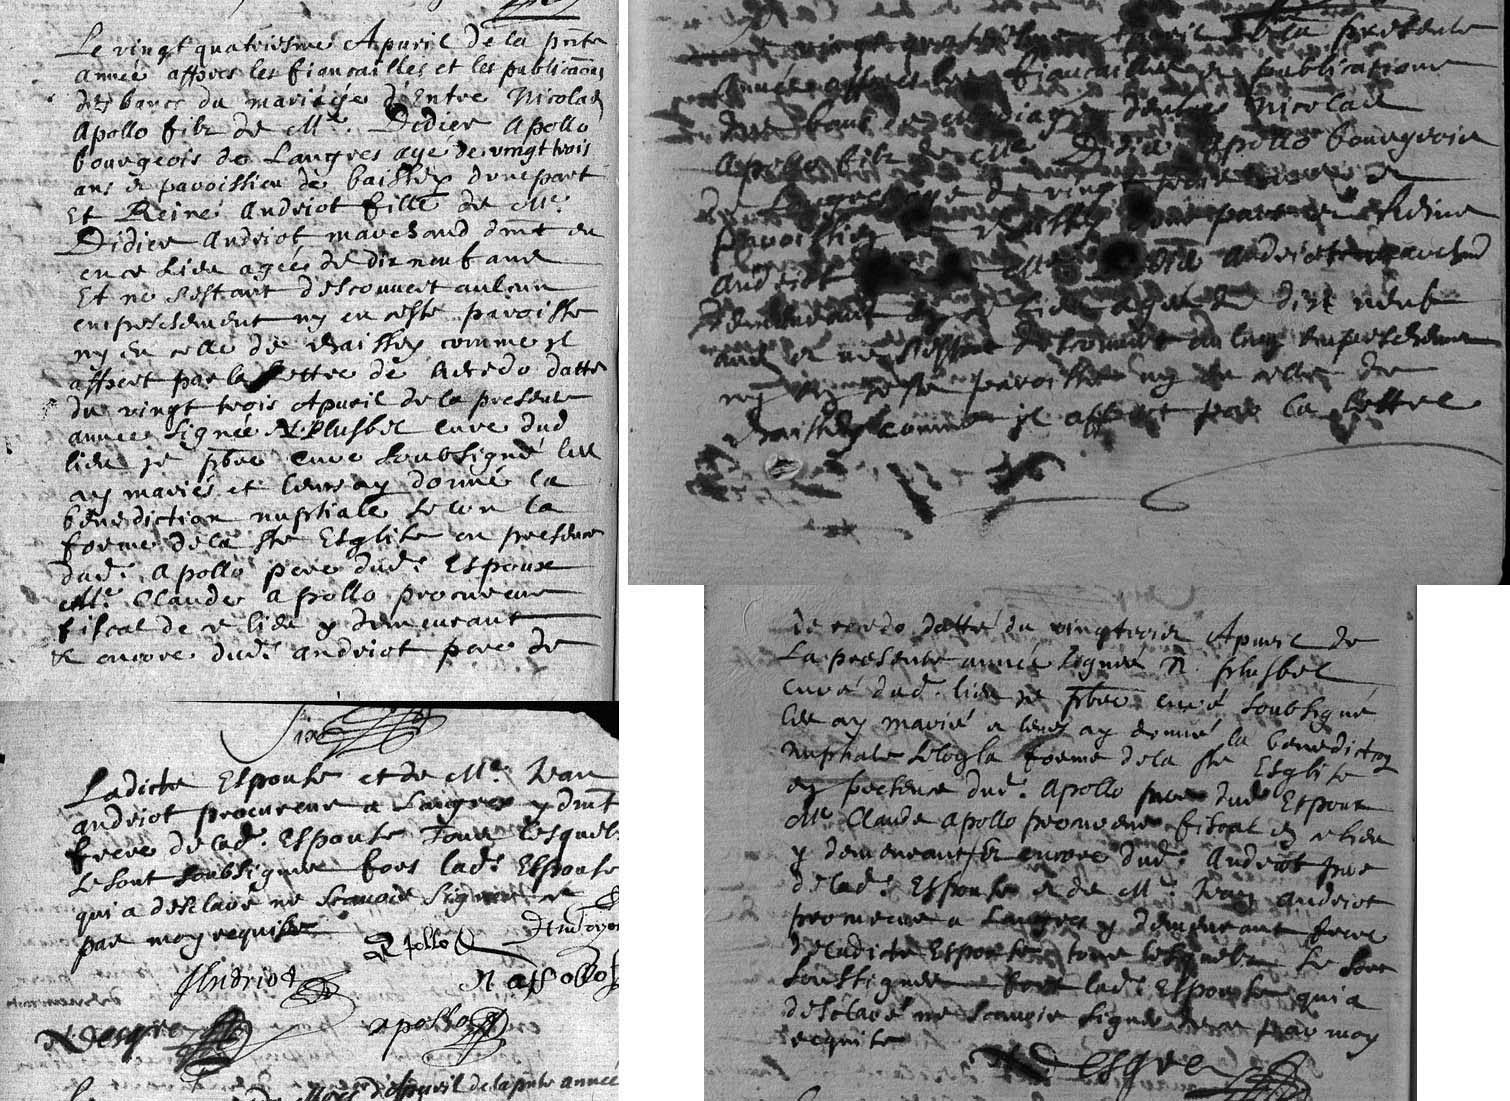 Le vingt quatriesme Apuril de la pnte
année appres les fiancailles et les publicaons
des bancs du mariage d'Entre Nicolas
Apollo filz de Me. Didier Apollo
bourgeois de Langres agé de vingt trois
ans et paroissien de baissey d'une part
Et Reine Andriot fille de Me.
Didier Andriot marchand dmt en
en ce Lieu agée de dix neuf ans
Et ne s'estant descouvert aulcun
empeschement ny en ceste paroisse
ny en celle de Baissey comme il
appert par la lettre de recedo datté
du vingt trois Apuril de la presente
année signée N Plusbel curé dud
lieu je pbre curé soubsigné les
ay mariés et leurs ay donné la
bénédiction nuptiale selon la
forme de la ste Esglise en presence
dud. Apollo pere dud. Espoux
Me. Claude Apollo procureur
fiscal de ce lieu y demeurant
et encore dud. andriot pere de
Ladicte Espouse et de Me. Jean
andriot procureur a Langres y dmt
frere de lad. Espouse Tous lesquels
se sont soubsignes fors lad. Espouse
qui a desclaré ne scavoir signer de ce
par moy requise
Apollo
JAndriot
N apollo
N Desgrez
apollo
Apuril de la pnte année
Le vingt quatriesme Apuril de la presente
année appres les fiancailles et publications
des bans de mariage d'entres Nicolas
Apollo filz de Me Didier Apollo bourgeois
de Langres agé de vingt trois ans et
paroissien de Baissey d'une part et Reine
Andriot Me Didier Andriot marchand
demeurant en ce lieu agée de dix neuf
ans et ne s'estant descouvert aulcung empeschement
ny en ceste paroisse ny en celle de
Baissey comme il appert par la lettre
de recedo datté du vingtrois Apuril de
La presente année signée N. plusbel
curé dud. lieu je pbre curé soubsigné
les ay marié et leurs ay donné la bénédiction
nuptiale selon la forme de la ste Esglise
en presence dud. Apollo pere dud Espoux
Me Claude apollo procureur fiscal en ce lieu
y demeurant et encore dud. Andriot pere
de lad. Espouse et de Me. Jean andriot
procureur a Langres y demeurant frere
de ladicte Espouse tous lesquels se sont
soussignes fors lad. Espouse qui a
desclaré ne scavoir signer de ce par moy
requise
N Desgrez